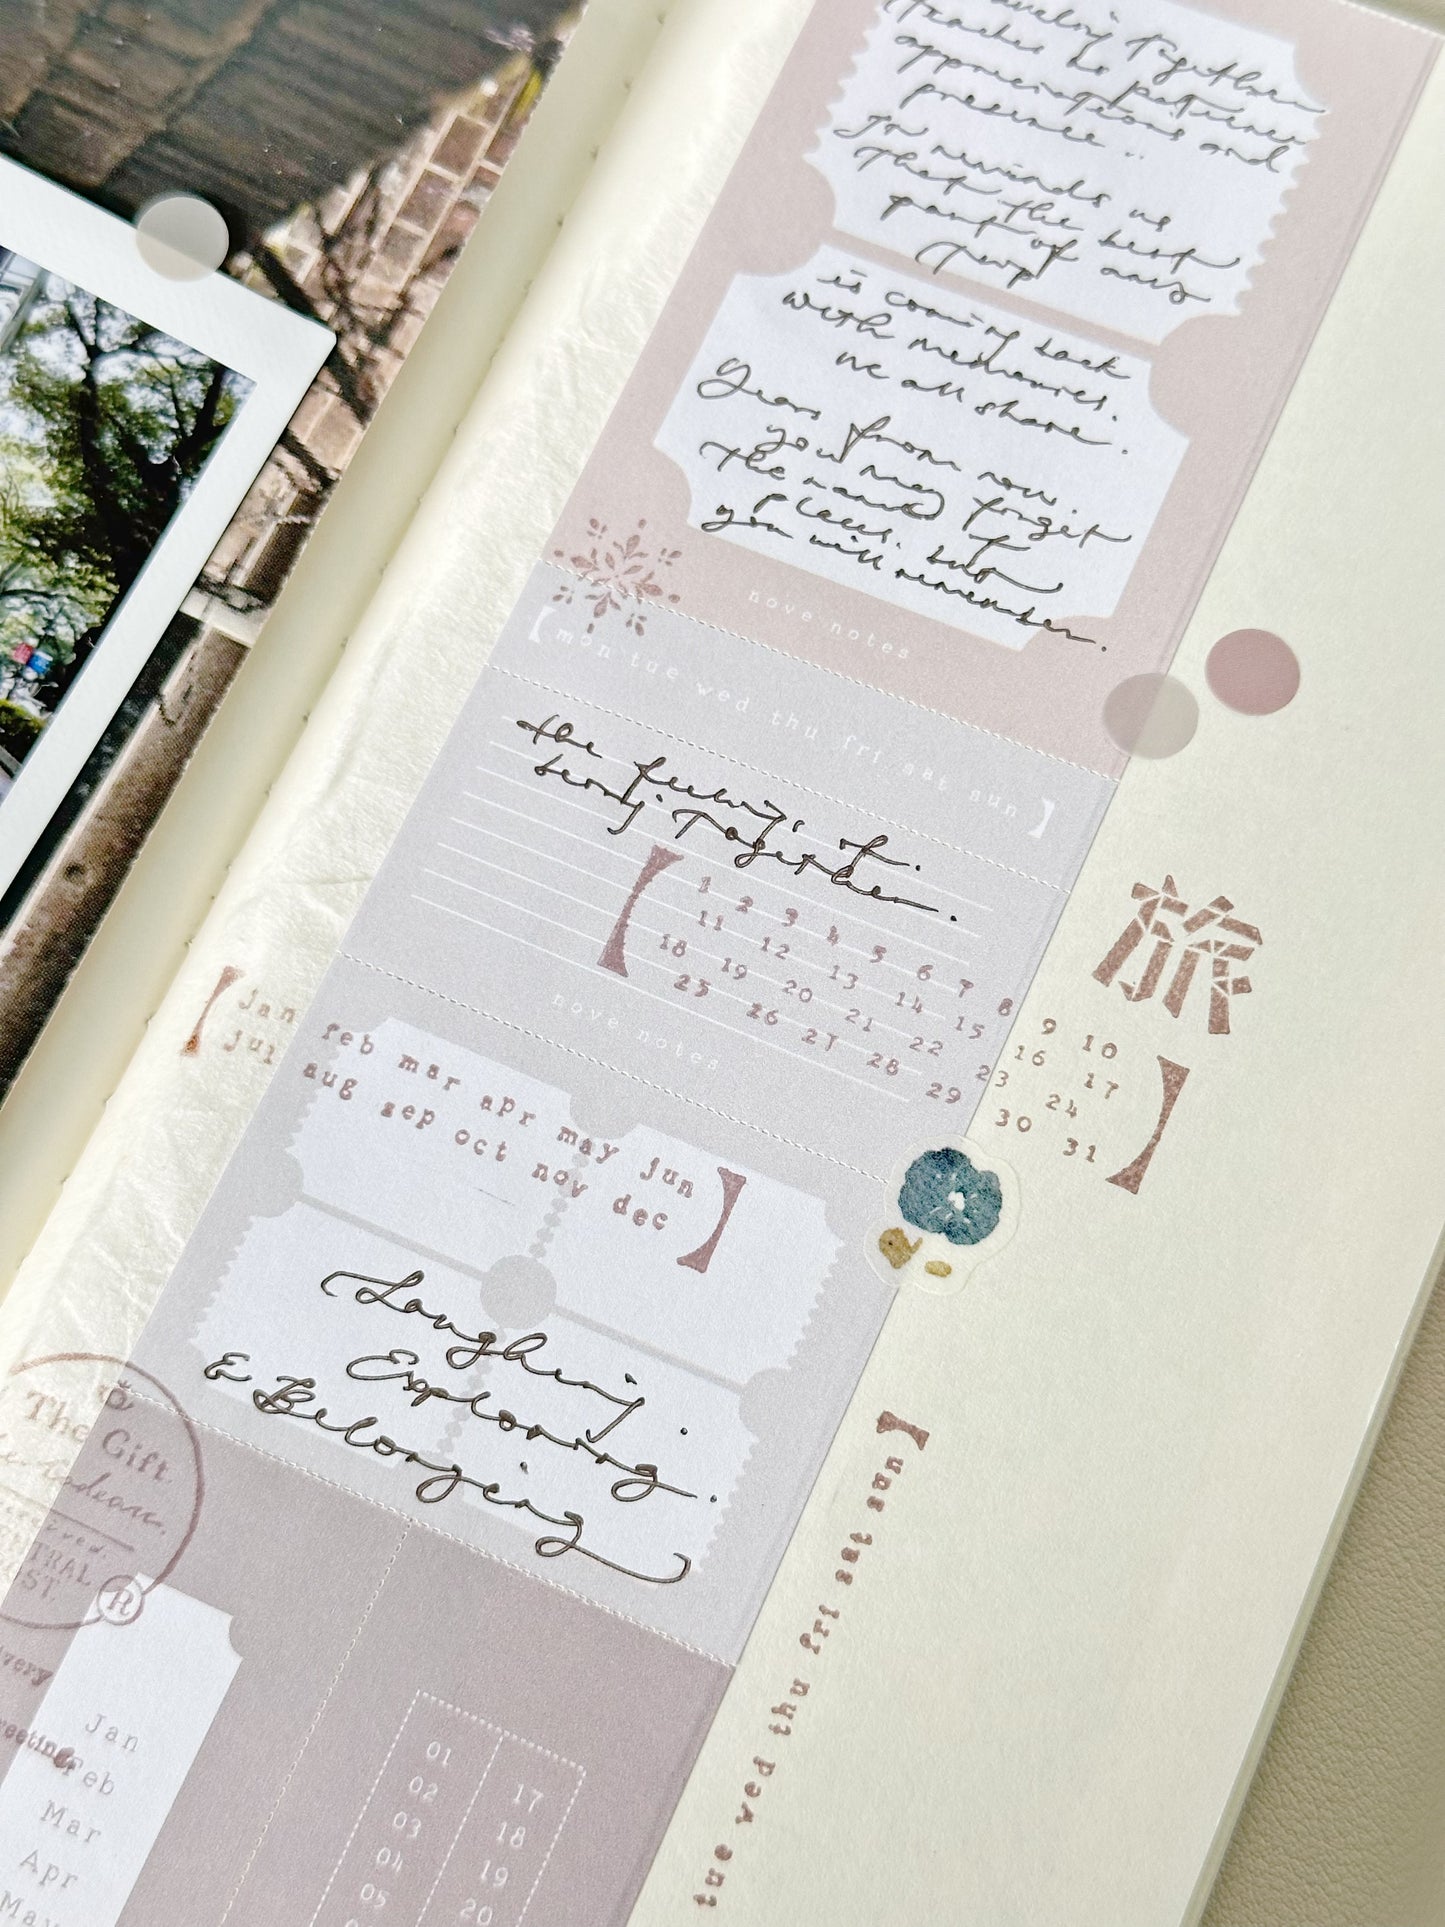 Traveling Together
teaches us patience
appreciations and
presence..
It reminds us
that the best
part of any
trip
is coming back
with memories.
we all share.
Years from now.
you may forget
the names of
places. but
you will remember.
nove notes
【mon tue wed thu fri sat sun】
the feeling, of.
being Together.
旅
1 2 3 4 5 6 7 8 9 10
11 12 13 14 15 16 17
18 19 20 21 22 23 24
25 26 27 28 29 30 31
nove notes
jan feb mar apr may jun
jul aug sep oct nov dec
Laughing.
Exploring.
& Belonging
The Gift
Cadeau.
R
tue wed thu fri sat sun
Jan
Feb
Mar
Apr
May
01 17
02 18
03 19
04 20
05